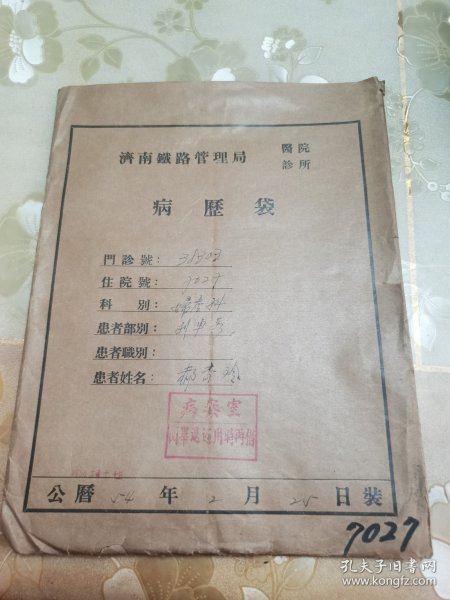 濟南鐵路管理局 醫院 診所
病歷袋
門診號：
住院號：7027
科別：婦產科
患者部別：
患者職別：
患者姓名：
病案室
公曆 54 年 2 月 25 日裝
7027
孔夫子旧书网
www.kongfz.com